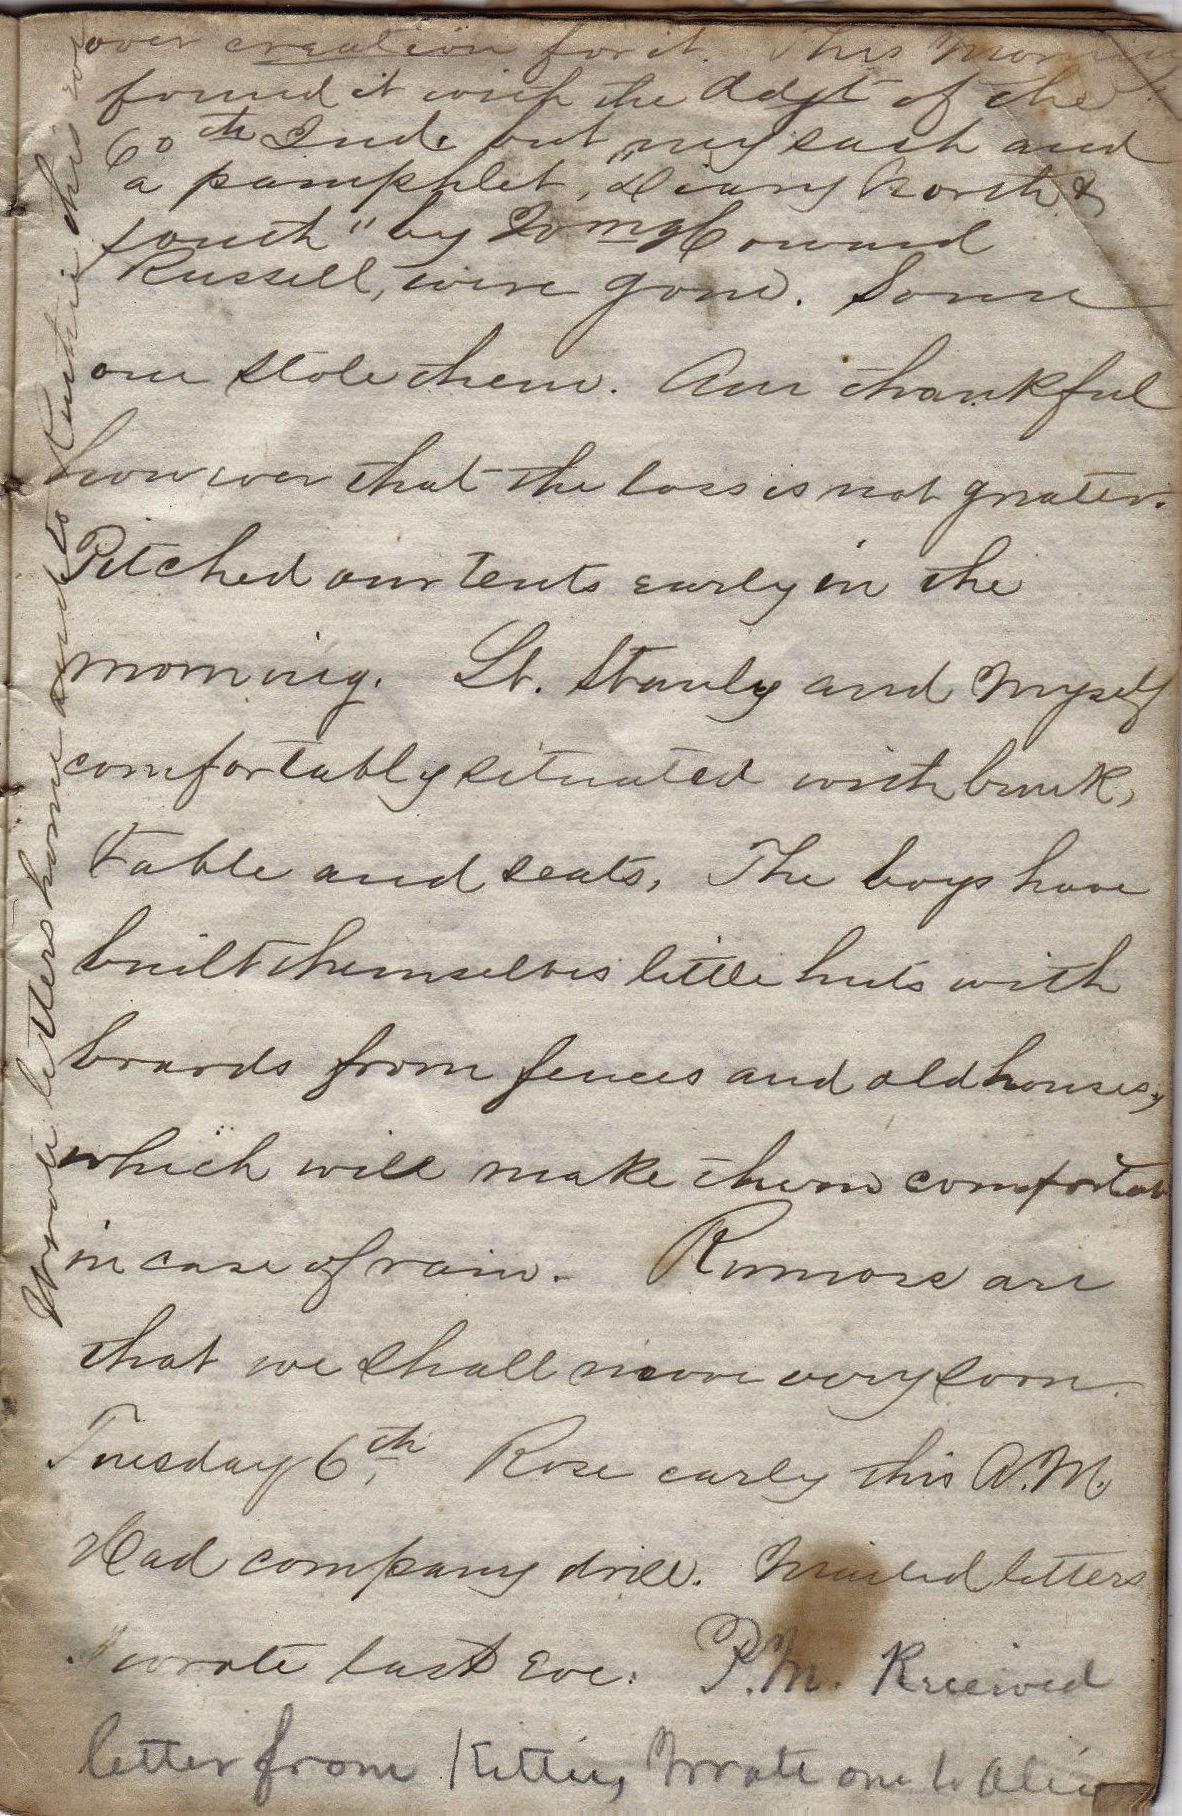 over creation for it. This morning
found it with the Adgt of the
60th Ind. but my sash and
a pamphlet, "Diary North &
South" by Wm Howard
Russell, were gone. Some
one stole them. Am thankful
however that the loss is not greater.
Pitched our tents early in the
morning. Lt. Stanly and myself
comfortably situated with bunk,
table and seats. The boys have
built themselves little huts with
boards from fences and old houses,
which will make them comfortab
in case of rain. Rumors are
that we shall move very soon.
Tuesday 6th. Rose early this A.M.
Had company drill. Mailed letters
I wrote last Eve. P.M. Received
letter from Kittie, Wrote one to
Wrote letters home and to this